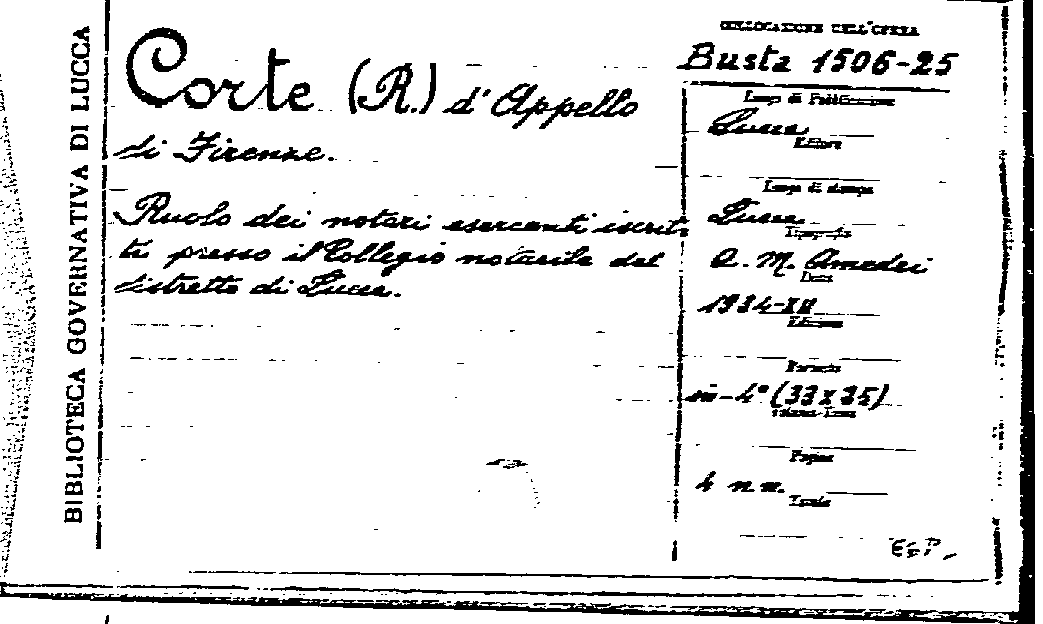 BIBLIOTECA GOVERNATIVA DI LUCCA
Corte (R.) d'Appello
di Firenze.
Ruolo dei notari esercenti iscrit-
ti presso il Collegio notarile del
distretto di Lucca.
COLLOCAZIONE DELL'OPERA
Busta 1506-25
Luogo di Pubblicazione
Lucca
Editore
Luogo di stampa
Lucca
Tipografia
A. M. Amedei
Data
1934-XII
Edizione
Formato
in-4° (33x25)
Volume-Tomo
Pagine
4 n.n.
Tavole